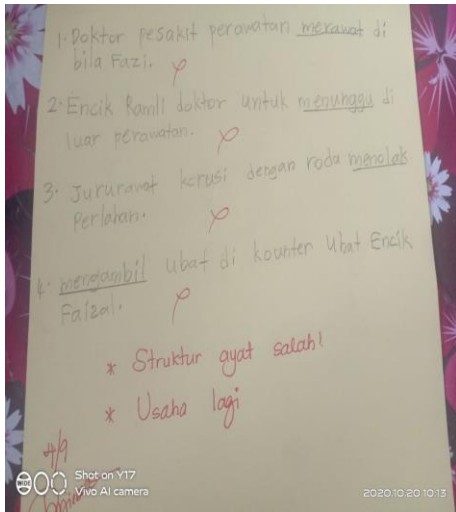 1. Doktor pesakit perawatan merawat di
bila Fazi.
2. Encik Ramli doktor untuk menunggu di
luar perawatan.
3. Jururawat kerusi dengan roda menolak
Perlahan.
4. mengambil ubat di kounter Ubat Encik
Faizal.
* Struktur ayat salah!
* Usaha lagi
4/9
Shot on Y17
Vivo AI camera
2020.10.20 10:13